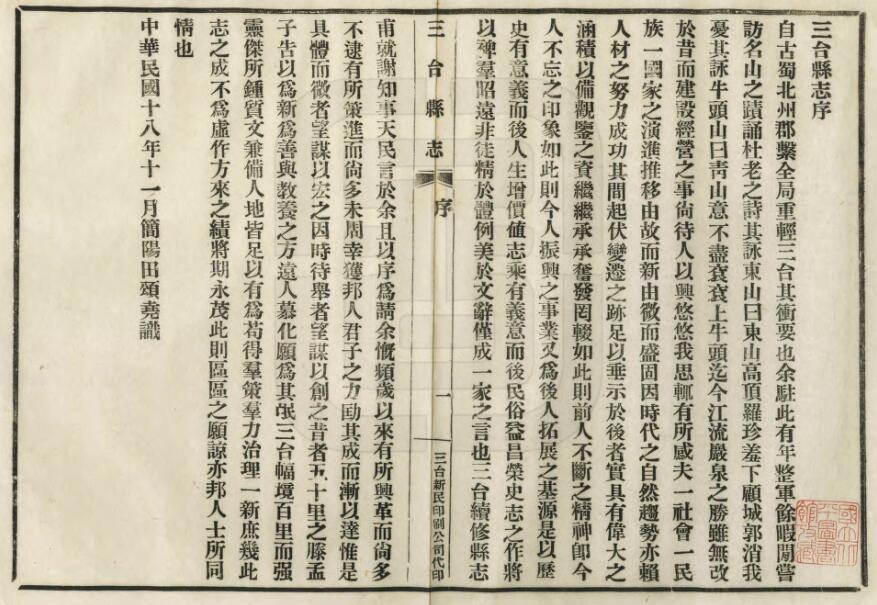 三台縣志序
自古蜀北州郡繫全局重輕三台其衝要也余駐此有年整軍餘暇間嘗
訪名山之蹟誦杜老之詩其詠東山曰東山高頂羅珍羞下顧城郭消我
憂其詠牛頭山曰靑山意不盡袞袞上牛頭迄今江流巖泉之勝雖無改
於昔而建設經營之事尙待人以興悠悠我思輒有所感夫一社會一民
族一國家之演進推移由故而新由微而盛固因時代之自然趨勢亦賴
人材之努力成功其間起伏變遷之跡足以垂示於後者實具有偉大之
涵積以備觀鑒之資繼繼承承奮發罔輟如此則前人不斷之精神卽今
人不忘之印象如此則今人振興之事業又爲後人拓展之基源是以歷
史有意義而後人生增價値志乘有義意而後民俗益昌榮史志之作將
以裨羣昭遠非徒精於體例美於文辭僅成一家之言也三台續修縣志
三台縣志
序
一
三台新民印刷公司代印
甫就謝知事天民言於余且以序爲請余慨頻歲以來有所興革而尙多
不逮有所策進而尙多未周幸獲邦人君子之力勖其成而漸以達惟是
具體而微者望謀以宏之因時待舉者望謀以創之昔者五十里之滕孟
子告以爲新爲善與敎養之方遠人慕化願爲其氓三台幅境百里而强
靈傑所鍾質文兼備人地皆足以有爲苟得羣策羣力治理一新庶幾此
志之成不爲虛作方來之績將期永茂此則區區之願諒亦邦人士所同
情也
中華民國十八年十一月簡陽田頌堯識